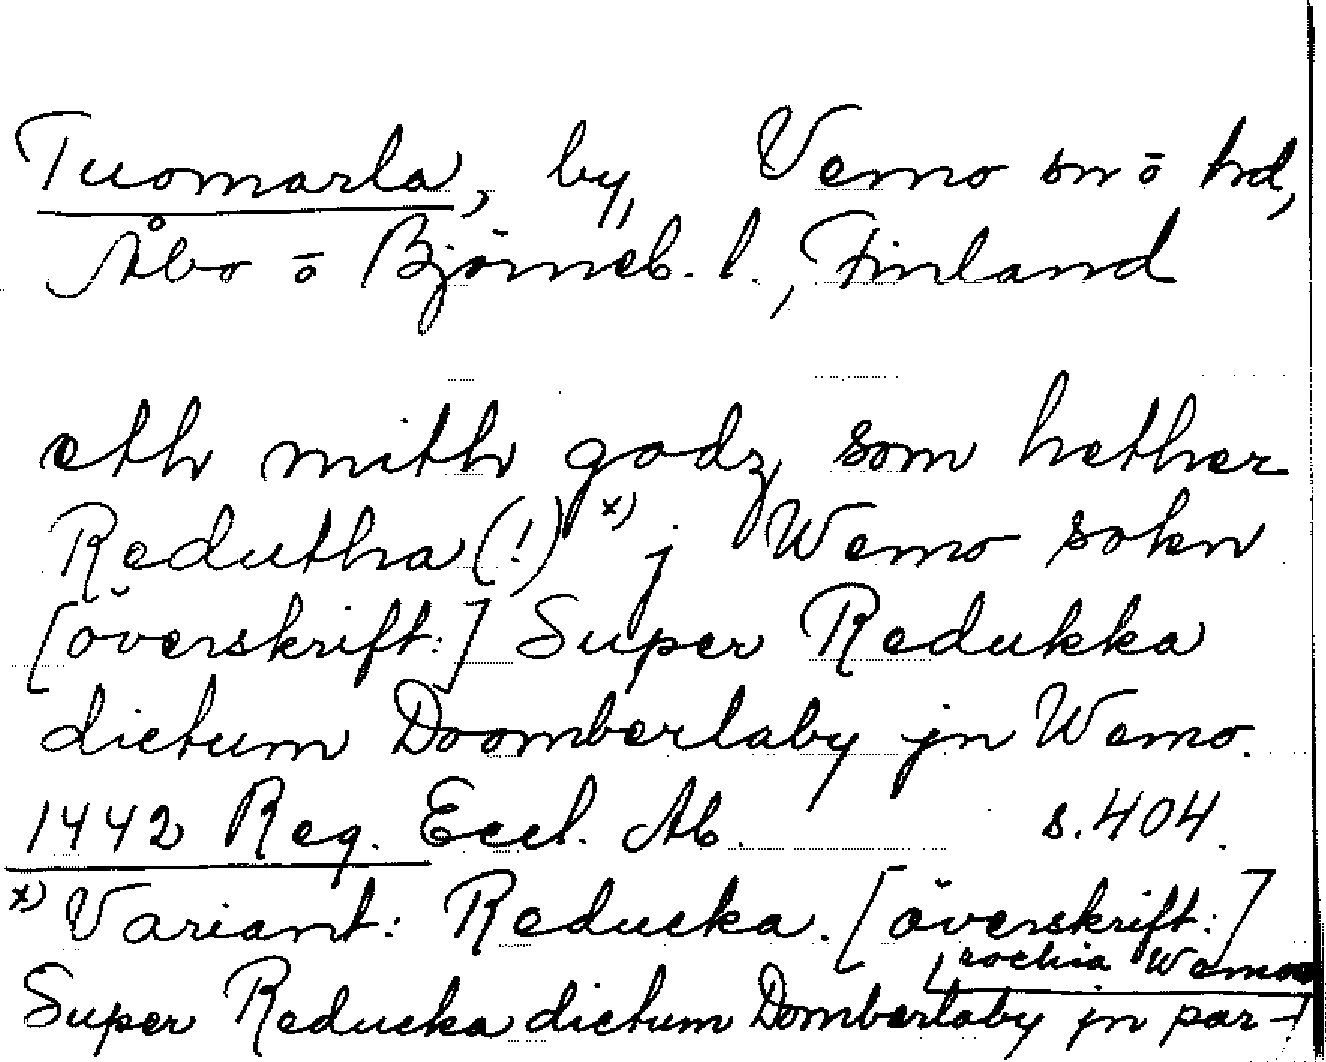 Tuomarla, by, Vemo sn ō hd,
Åbo ō Björneb. l., Finland
eth mith godz som hether
Redutha(!) x) j Wemo sokn
[överskrift:] Super Redukka
dictum Doomberlaby jn Wemo.
1442 Reg. Eccl. Ab. s.404.
x) Variant: Reducka. [överskrift:]
Super Reducka dictum Domberlaby jn par-
rochia Wemo